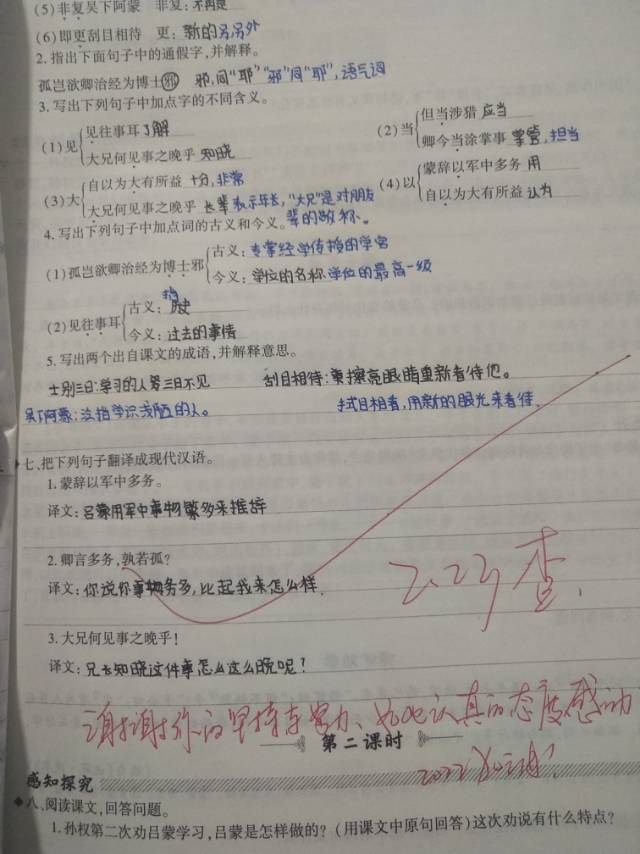 (5)非复吴下阿蒙 非复:不再是
(6)即更刮目相待 更:新的另另外
2.指出下面句子中的通假字,并解释。
孤岂欲卿治经为博士邪 邪,同“耶”“邪”同“耶”,语气词
3.写出下列句子中加点字的不同含义。
(1)见 见往事耳 了解
大兄何见事之晚乎 知晓
(2)当 但当涉猎 应当
卿今当涂掌事 掌管,担当
(3)大 自以为大有所益 十分,非常
大兄何见事之晚乎 长辈 表示年长,“大兄”是对朋友辈的敬称。
(4)以 蒙辞以军中多务 用
自以为大有所益 认为
4.写出下列句子中加点词的古义和今义。
(1)孤岂欲卿治经为博士邪 古义:专掌经学传授的学官
今义:学位的名称 学位的最高一级
(2)见往事耳 古义:指历史
今义:过去的事情
5.写出两个出自课文的成语,并解释意思。
士别三日:学习的人第三日不见 刮目相待:要擦亮眼睛重新看待他。
吴下阿蒙:泛指学识浅陋的人。 拭目相看,用新的眼光来看待.
七、把下列句子翻译成现代汉语。
1.蒙辞以军中多务。
译文:吕蒙用军中事物繁多来推辞
2.卿言多务,孰若孤?
译文:你说你事物务多,比起我来怎么样.
2.23 查.
3.大兄何见事之晚乎!
译文:兄长知晓这件事怎么这么晚呢?
谢谢你的坚持与努力、为你认真的态度感动
第二课时
2022
感知探究
八、阅读课文,回答问题。
1.孙权第二次劝吕蒙学习,吕蒙是怎样做的?(用课文中原句回答)这次劝说有什么特点?